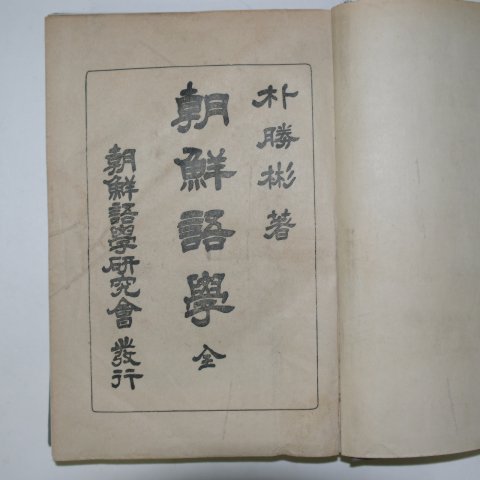 朴勝彬著
朝鮮語學 全
朝鮮語學硏究會 發行